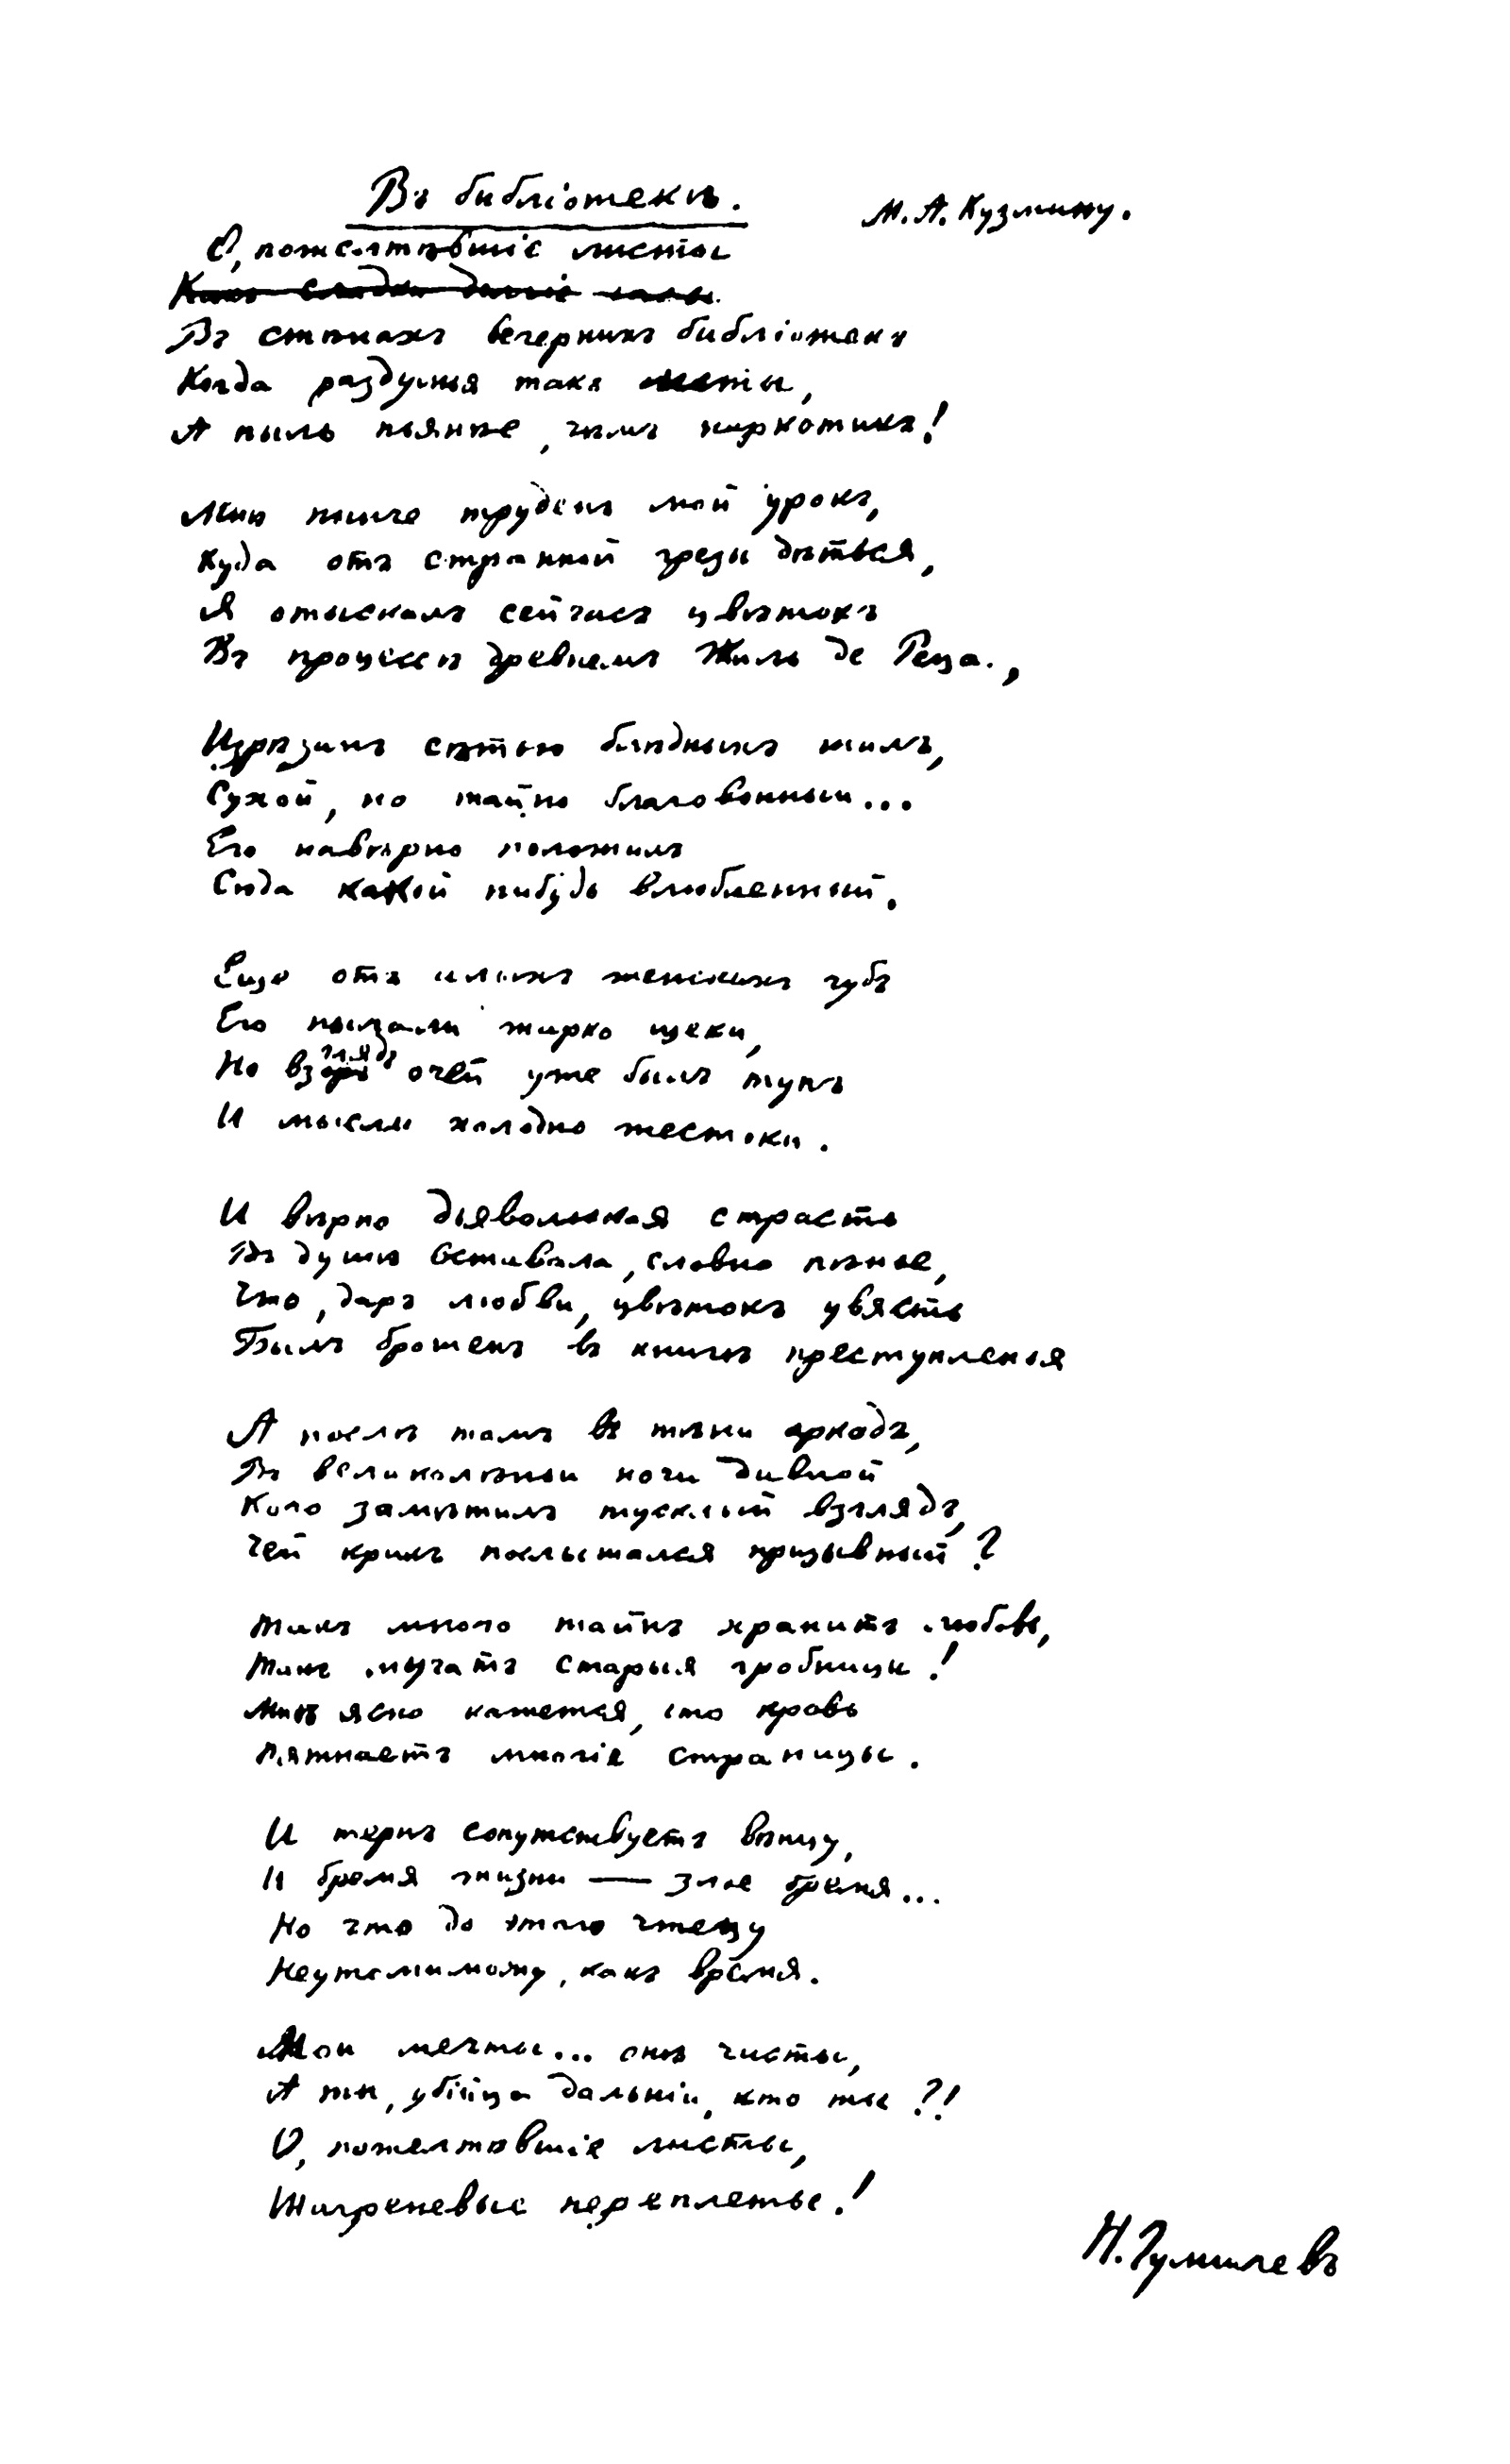 Въ библіотекѣ.
М. А. Кузмину.
О, пожелтѣвшіе листы
Въ стѣнахъ вечернихъ библіотекъ
Когда раздумья такъ чисты,
А пыль пьянѣе, чѣмъ наркотикъ!
Мнѣ нынче труденъ мой урокъ,
Куда отъ странной грезы дѣться,
Я отыскалъ сейчасъ цвѣтокъ
Въ процессѣ древнемъ Жиль де Реца.,
Изрѣзанъ сѣтью блѣдныхъ жилъ,
Сухой, но тайно благовонный...
Его навѣрно положилъ
Сюда какой нибудь влюбленный.
Еще отъ алыхъ женскихъ губъ
Его пылали жарко щеки,
Но взглядъ очей уже былъ тупъ
И мысли холодно жестоки.
И вѣрно дьявольская страсть
Въ душѣ вставала, словно пѣнье,
Что, даръ любви, цвѣтокъ увясть
Былъ брошенъ въ книгѣ преступленья
А послѣ тамъ въ тѣни аркадъ,
Въ великолѣпьи ночи дивной
Кого замѣтилъ тусклый взглядъ,
Чей крикъ послышался призывный?
Такъ много тайнъ хранитъ любовь,
Такъ мучатъ старыя гробницы!
Мнѣ ясно кажется, что кровь
Пятнаетъ многіе страницы.
И тернъ сопутствуетъ вѣнцу,
И бремя жизни — злое бремя...
Но что до этого чтецу
Неутомимому, какъ время.
Мои мечты... онѣ чисты,
А ты, убійца дальній, кто ты?!
О, пожелтѣвшіе листы,
Шагреневые переплеты!
Н. Гумилевъ